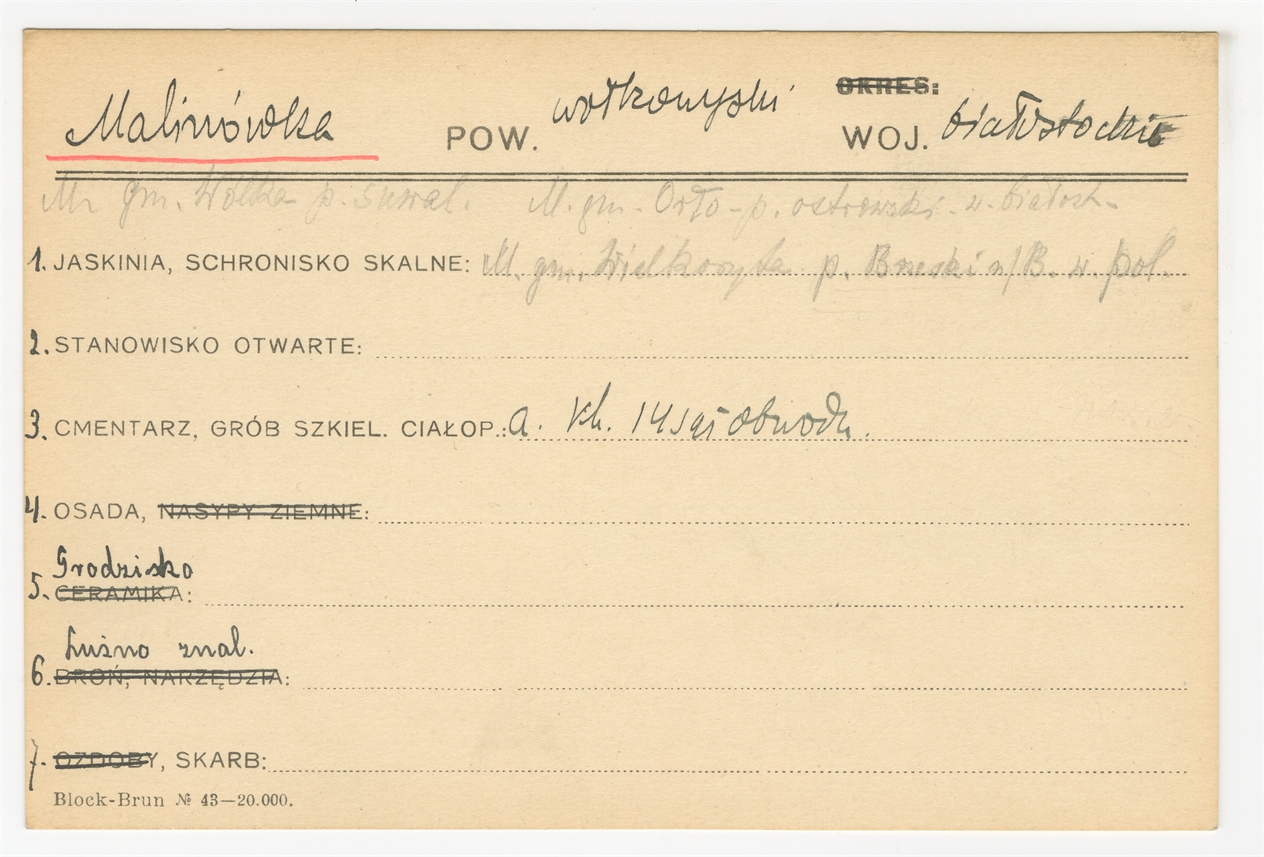 OKRES:
Malinówka POW. wołkowyski WOJ. białostockie
M. gm. Wólka p. suwal. M. gm. Orło p. ostrowski w. białost.
1. JASKINIA, SCHRONISKO SKALNE: M. gm. Wielkoryta p. Brzeski n/B. w. pol.
2. STANOWISKO OTWARTE:
3. CMENTARZ, GRÓB SZKIEL. CIAŁOP.: a. kh. 14 obwodu.
4. OSADA, NASYPY ZIEMNE:
Grodzisko
5. CERAMIKA:
Luźno znal.
6. BROŃ, NARZĘDZIA:
7. OZDOBY, SKARB:
Block-Brun № 43—20.000.